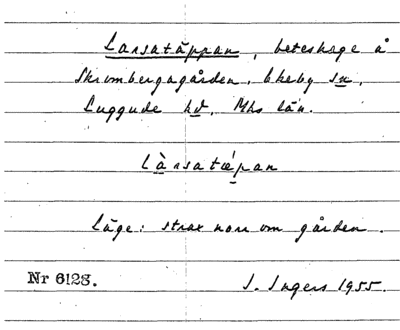 Larsatäppan, beteshage å
Skrombergagården, Ekeby sn,
Luggude hd, Mhs län.
Làrsatǽpan
Läge: strax norr om gården.
Nr 6128. I. Ingers 1955.